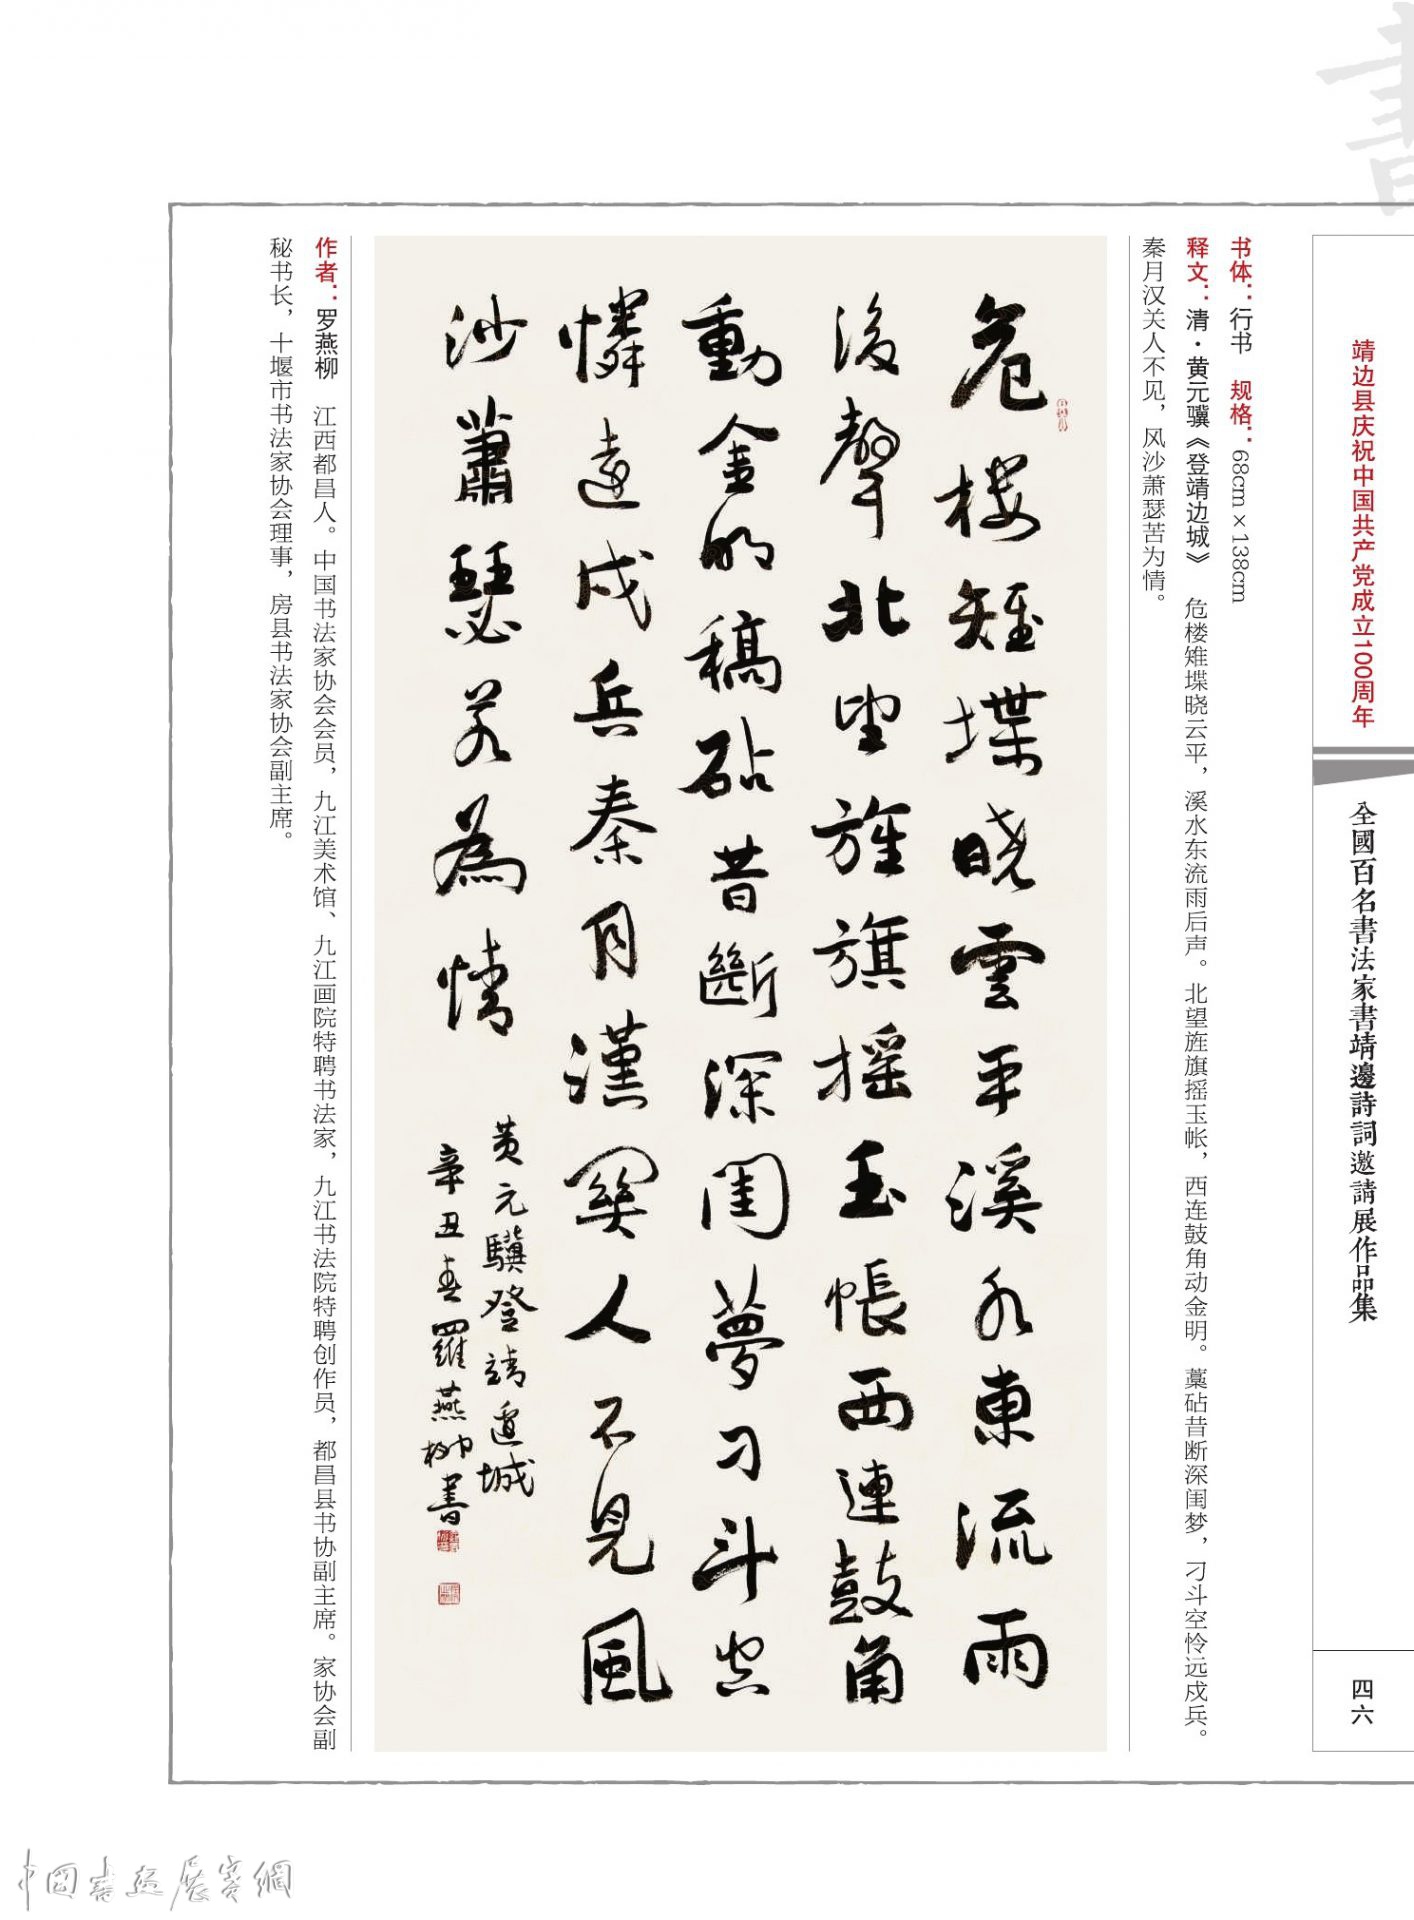 靖边县庆祝中国共产党成立100周年
全國百名書法家書靖邊詩詞邀請展作品集
四六
書
书体：行书 规格：68cm×138cm
释文：清·黄元骥《登靖边城》 危楼雉堞晓云平，溪水东流雨后声。北望旌旗摇玉帐，西连鼓角动金明。藁砧昔断深闺梦，刁斗空怜远戍兵。
秦月汉关人不见，风沙萧瑟苦为情。
危楼雉堞晓雲平溪水東流雨
後聲北望旌旗摇玉帳西連鼓角
動金明稿砧昔斷深閨夢刁斗空
憐遠戍兵秦月漢關人不見風
沙蕭瑟若為情
黄元驥登靖邊城
辛丑春羅燕柳書
作者：罗燕柳 江西都昌人。中国书法家协会会员，九江美术馆、九江画院特聘书法家，九江书法院特聘创作员，都昌县书协副主席。家协会副
秘书长，十堰市书法家协会理事，房县书法家协会副主席。
中國書畫展賽網